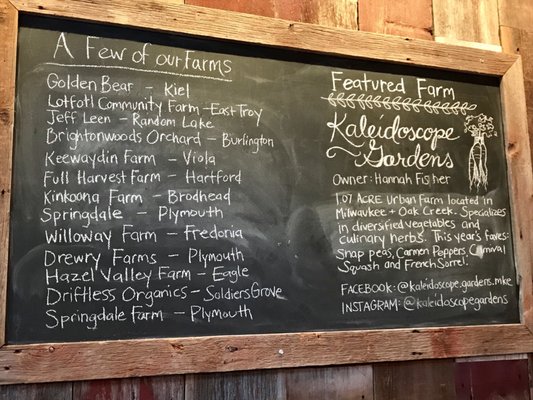 A Few of our Farms
Golden Bear - Kiel
Lotfotl Community Farm - East Troy
Jeff Leen - Random Lake
Brightonwoods Orchard - Burlington
Keewaydin Farm - Viola
Full Harvest Farm - Hartford
Kinkoona Farm - Brodhead
Springdale - Plymouth
Willoway Farm - Fredonia
Drewry Farms - Plymouth
Hazel Valley Farm - Eagle
Driftless Organics - Soldiers Grove
Springdale Farm - Plymouth
Featured Farm
Kaleidoscope
Gardens
Owner: Hannah Fisher
1.07 Acre Urban Farm located in
Milwaukee + Oak Creek. Specializes
in diversified vegetables and
culinary herbs. This year's faves:
Snap peas, Carmen Peppers, Carnival
Squash and French Sorrel.
FACEBOOK: @kaleidoscope.gardens.mke
INSTAGRAM: @kaleidoscopegardens